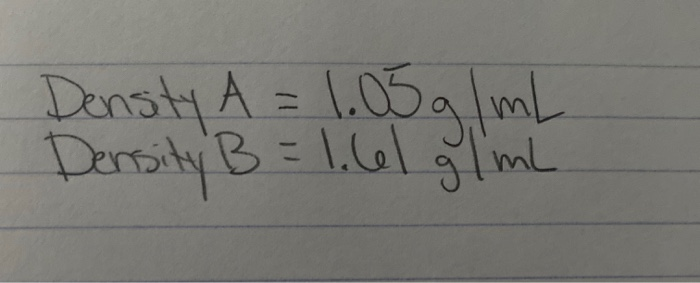 Density A = 1.05 g/mL
Density B = 1.61 g/mL